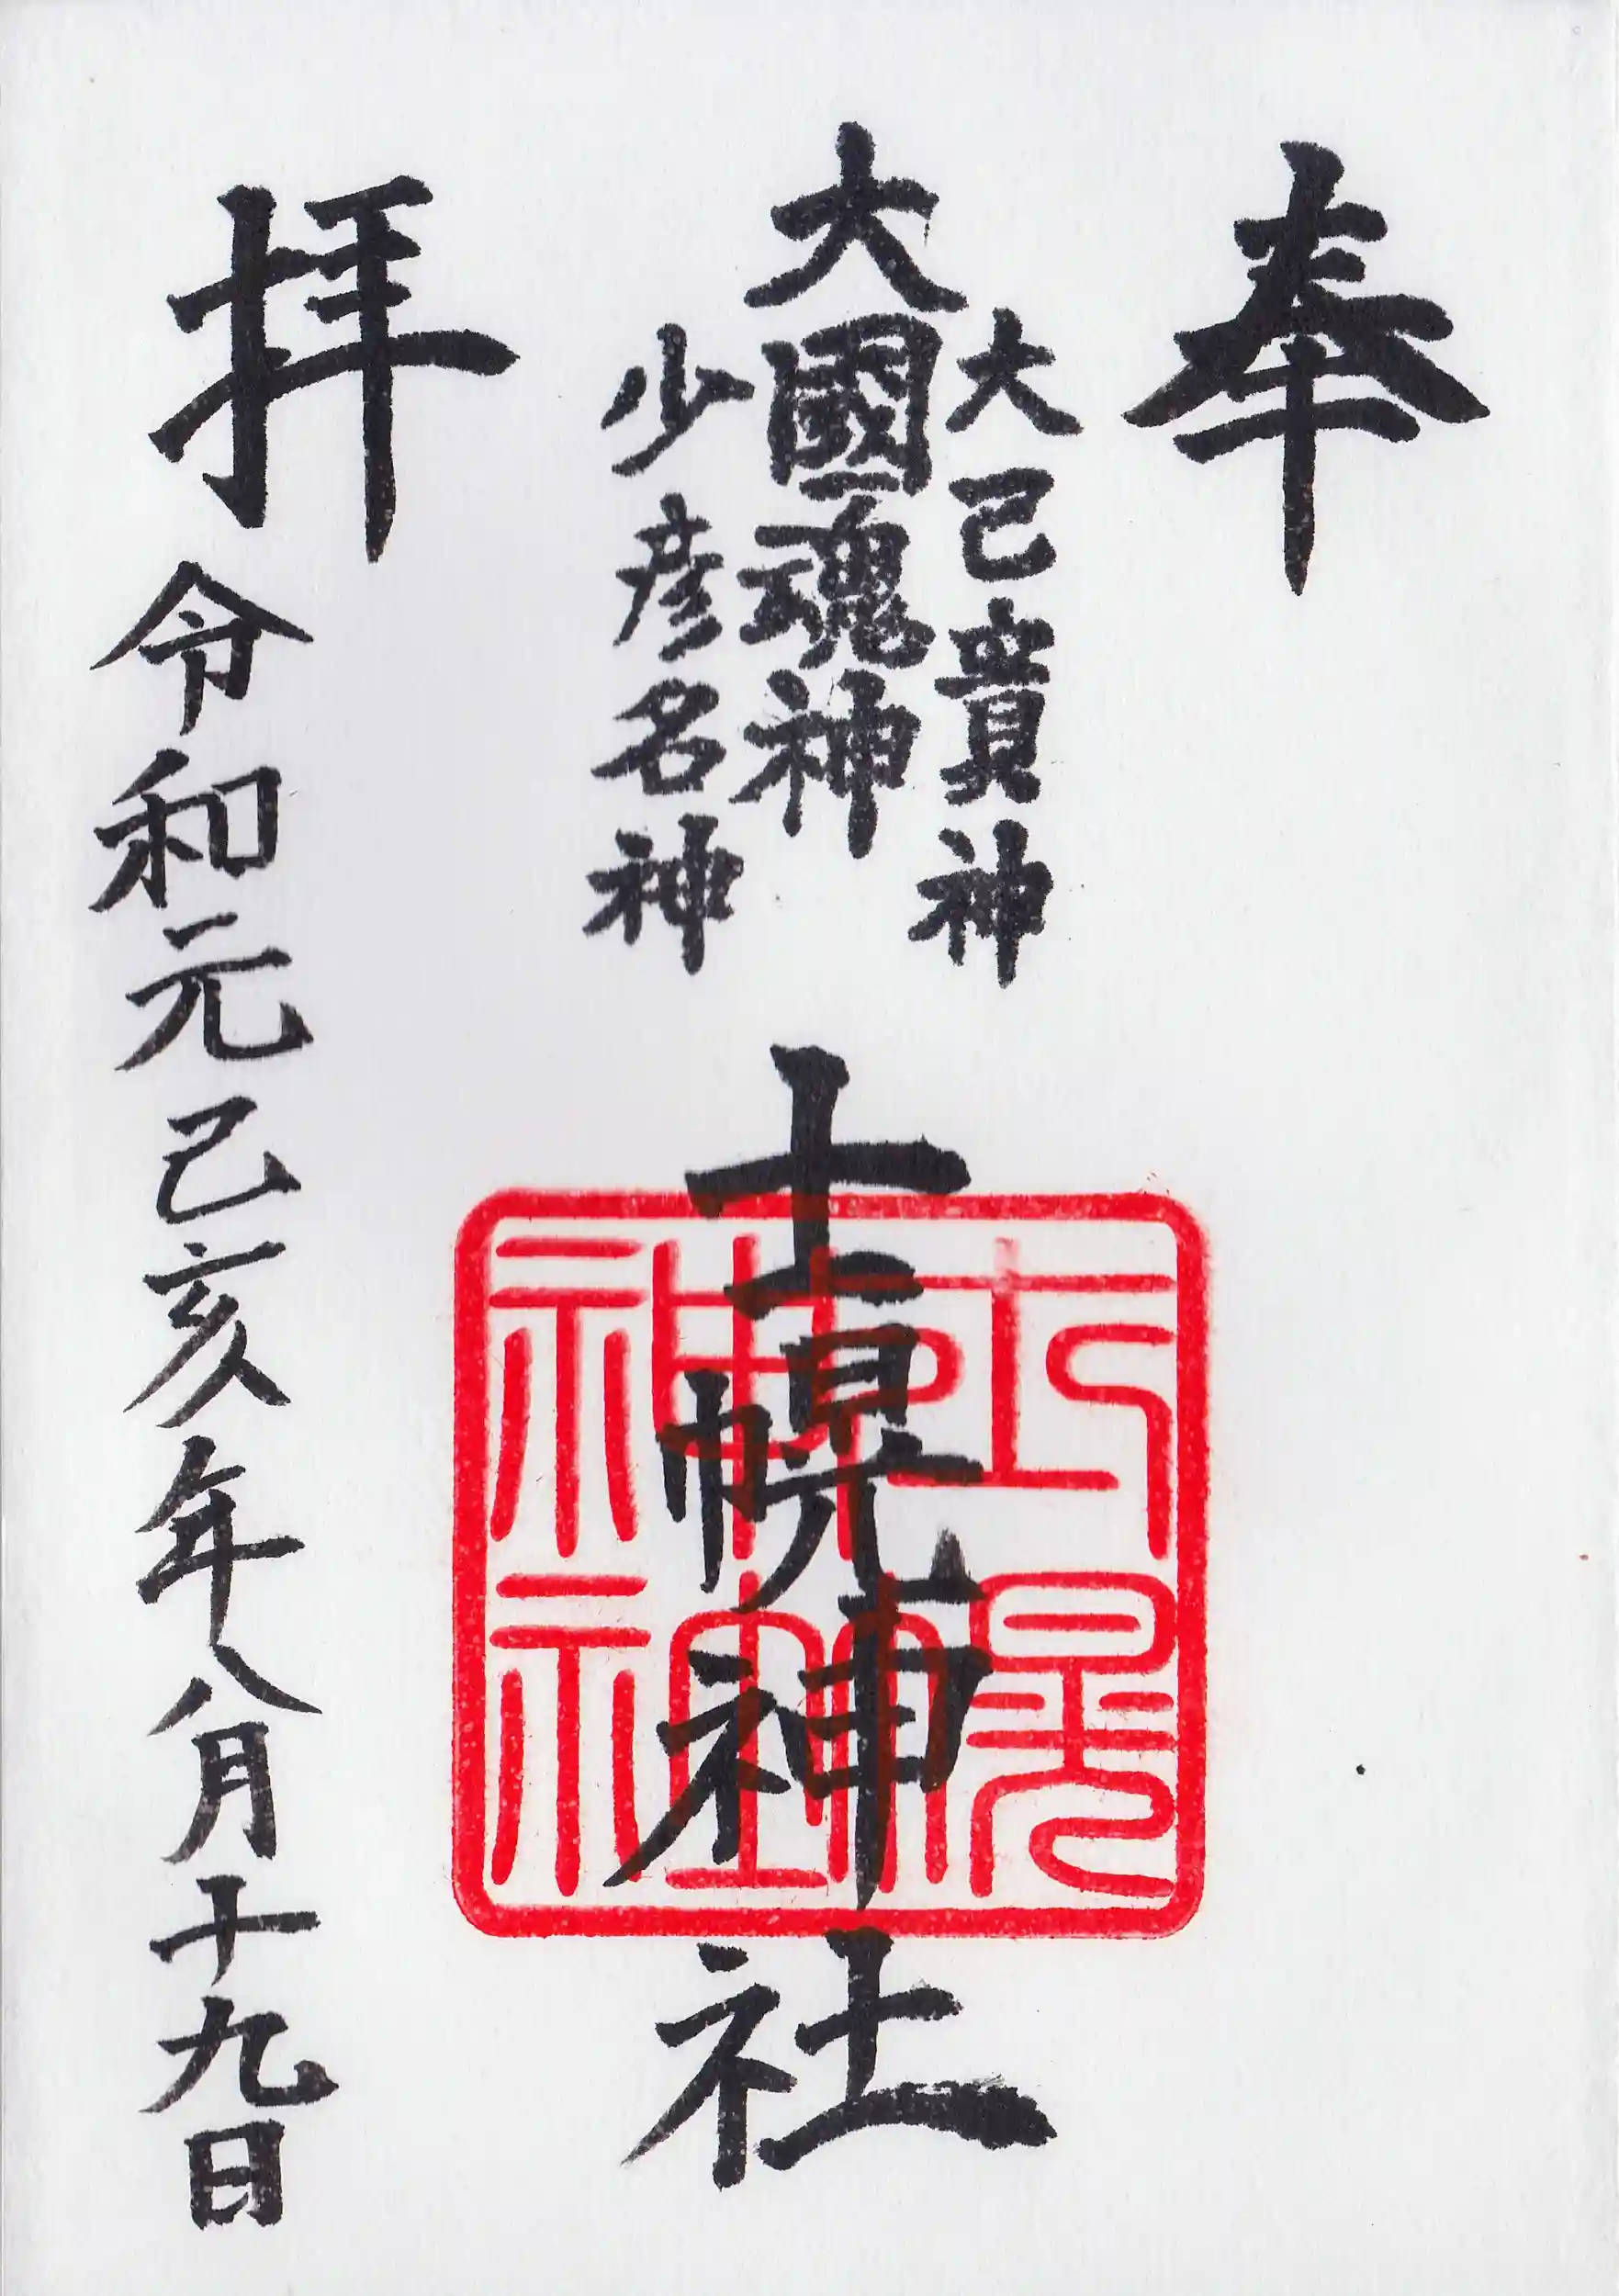 奉拝
大己貴神
大國魂神
少彦名神
士幌神社
士幌神社
令和元己亥年八月十九日